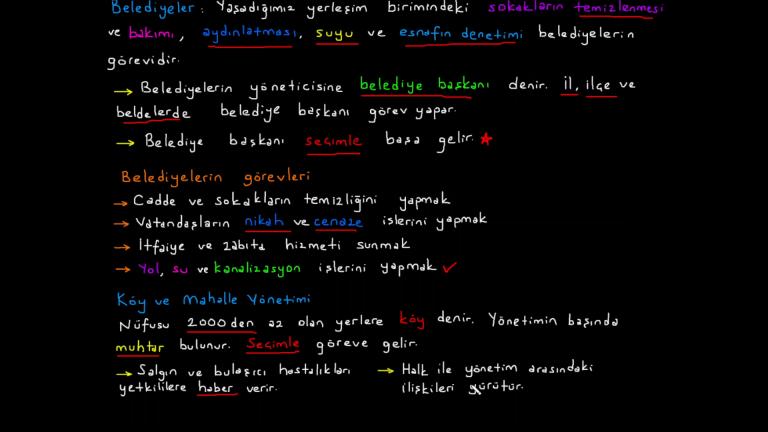 Belediyeler: Yaşadığımız yerleşim birimindeki sokakların temizlenmesi
ve bakımı, aydınlatması, suyu ve esnafın denetimi belediyelerin
görevidir.
→ Belediyelerin yöneticisine belediye başkanı denir. İl, ilçe ve
beldelerde belediye başkanı görev yapar.
→ Belediye başkanı seçimle başa gelir. ★
Belediyelerin görevleri
→ Cadde ve sokakların temizliğini yapmak
→ Vatandaşların nikah ve cenaze işlerini yapmak
→ İtfaiye ve zabıta hizmeti sunmak
→ Yol, su ve kanalizasyon işlerini yapmak ✓
Köy ve Mahalle Yönetimi
Nüfusu 2000den az olan yerlere köy denir. Yönetimin başında
muhtar bulunur. Seçimle göreve gelir.
→ Salgın ve bulaşıcı hastalıkları
yetkililere haber verir.
→ Halk ile yönetim arasındaki
ilişkileri yürütür.